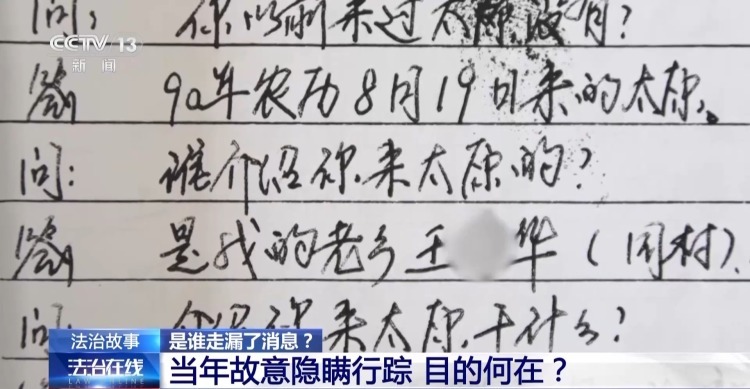 问：你以前来过太原没有？
CCTV 13
新闻
答 90年农历8月19日来的太原。
问：谁介绍你来太原的？
答 是我的老乡王 华（同村）.
问：介绍你来太原干什么？
法治故事 是谁走漏了消息？
法治在线 当年故意隐瞒行踪 目的何在？